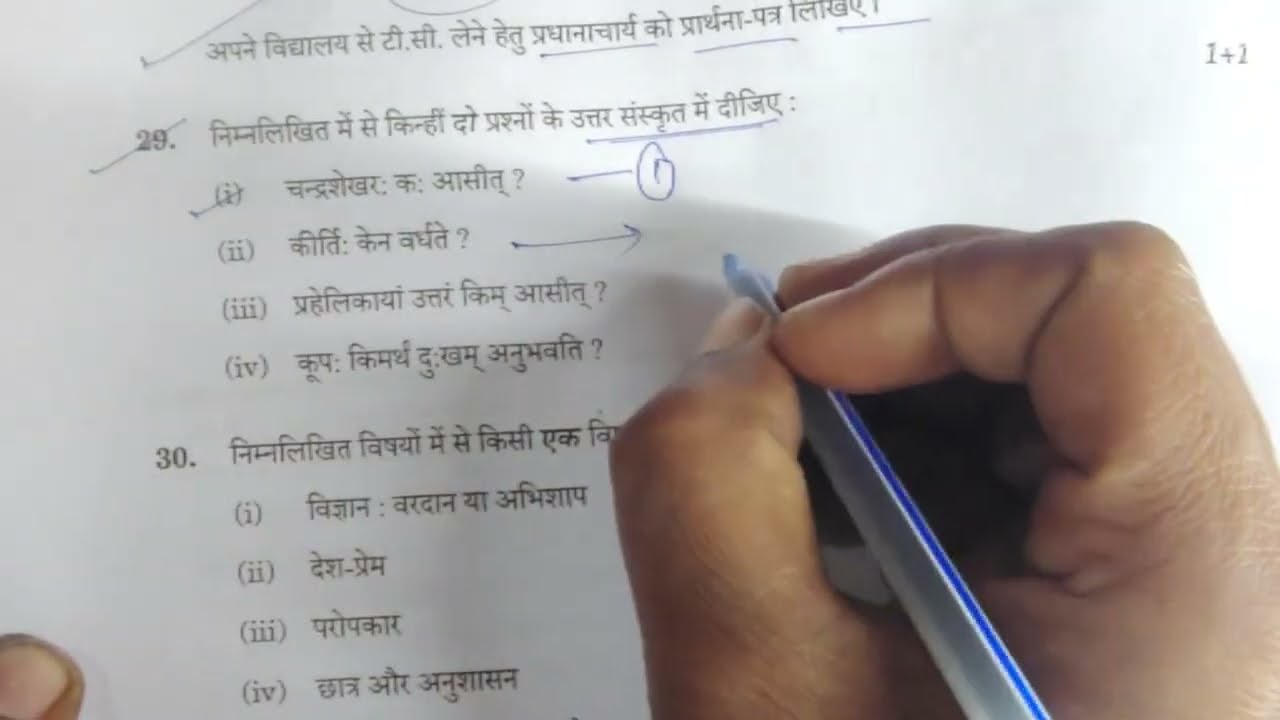 अपने विद्यालय से टी.सी. लेने हेतु प्रधानाचार्य को प्रार्थना-पत्र लिखिए।
1+1
29. निम्नलिखित में से किन्हीं दो प्रश्नों के उत्तर संस्कृत में दीजिए :
(i) चन्द्रशेखर: क: आसीत् ? १
(ii) कीर्ति: केन वर्धते ?
(iii) प्रहेलिकायां उत्तरं किम् आसीत् ?
(iv) कूप: किमर्थं दु:खम् अनुभवति ?
30. निम्नलिखित विषयों में से किसी एक
(i) विज्ञान : वरदान या अभिशाप
(ii) देश-प्रेम
(iii) परोपकार
(iv) छात्र और अनुशासन